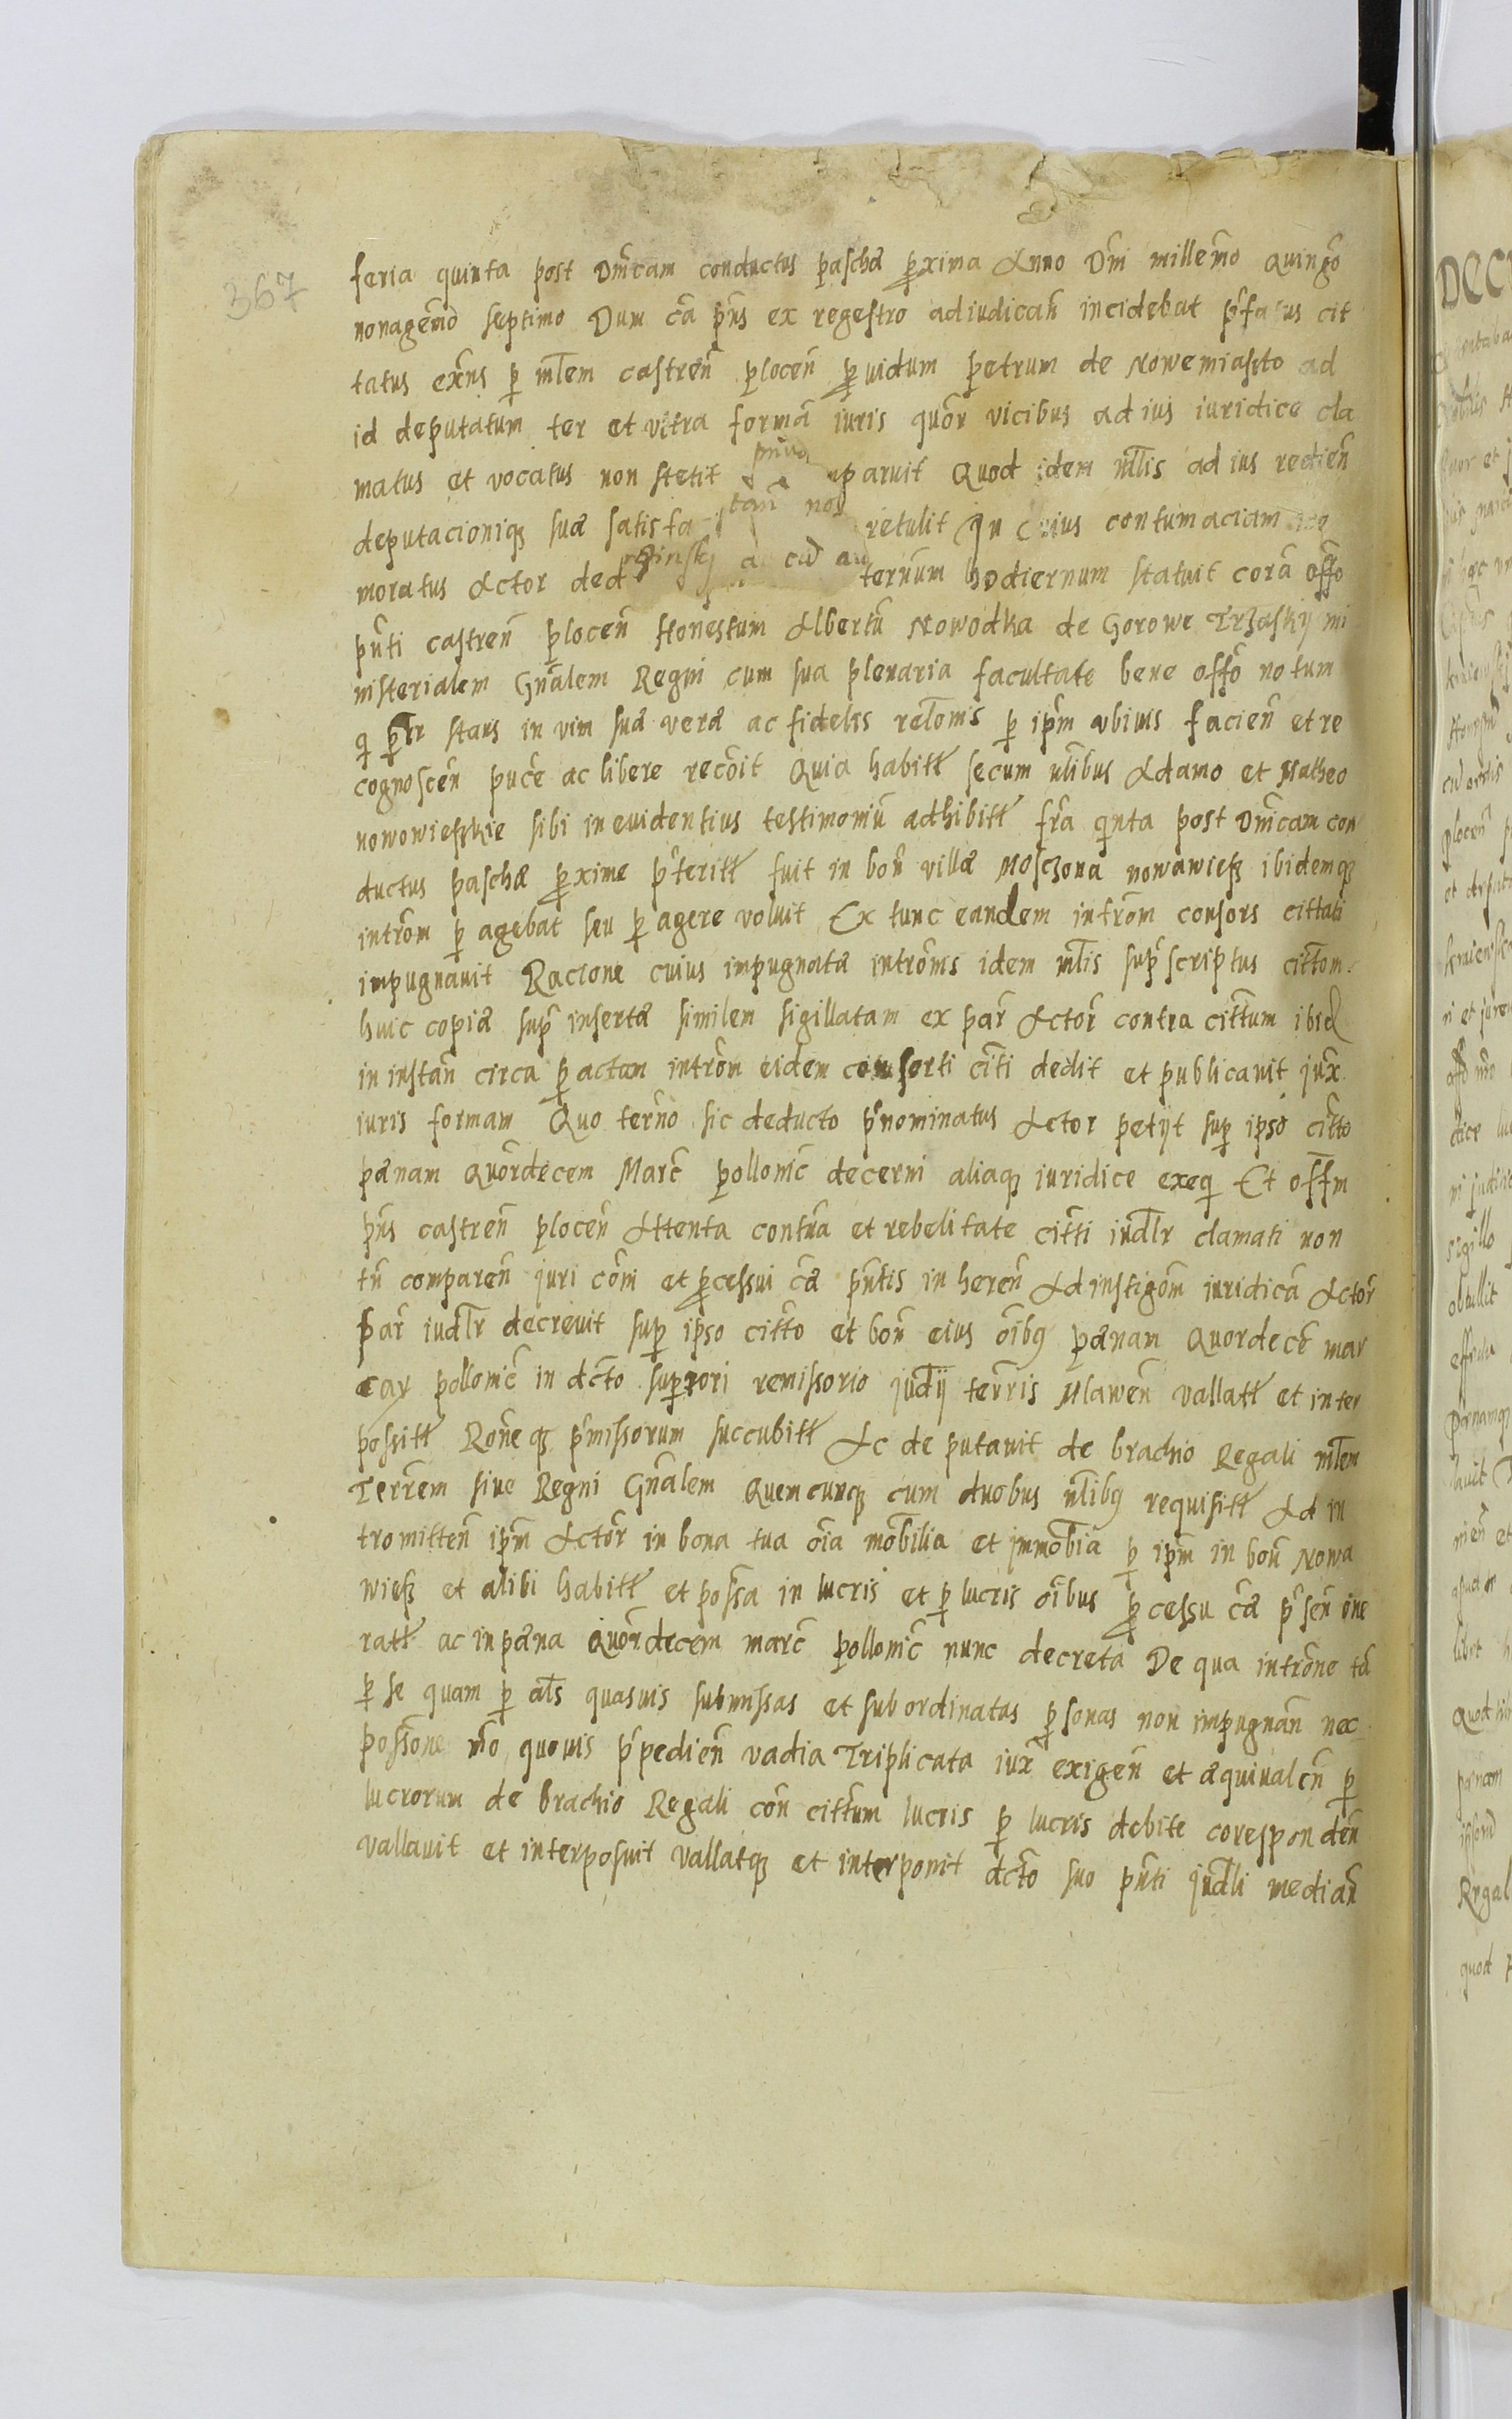 367
feria quinta post Dnicam conductus paschæ pxima Anno Dni millemo Quingo
nonagemo septimo Dum cã pñs ex regestro adiudicañ incidebat pfatus cit
tatus exñs p mlem castreñ plocen puidum petrum de Nowemiasto ad
id deputatum ter et vltra formã iuris quor vicibus ad ius iuridice cla
matus et vocatus non stetit paruit Quod idem mlis ad ius redieñ
deputacioniq suæ satisfa retulit In cuius contumaciam
moratus Actor ded ternum hodiernum statuit corã offo
pñti castreñ plocen Honestum Albertũ Nowodka de Gorowe Trzasky mi
nisterialem Gñalem Regni cum sua plenaria facultate bene offo notum
q stans in vim suæ veræ ac fidelis relonis p ipm vbiuis facieñ et re
cognosceñ puce ac libere recoit Quia habitt secum nlibus Adamo et Matheo
nowowieskie sibi in euidentius testimoniũ adhibitt fra qnta post Dnicam con
ductus paschæ pxime pteritt fuit in boñ villæ Mosczona nowawiesz ibidemq
introm p agebat seu p agere voluit Ex tunc eandem introm consors cittati
impugnauit Racione cuius impugnatæ introms idem mlis supscriptus cittom
huic copiæ sup insertæ similem sigillatam ex par Actor contra cittum ibid
in instañ circa p actam introm eidem consorti citti dedit et publicauit jux
iuris formam Quo terno sic deducto pnominatus Actor petijt sup ipso citto
pænam Quordecem Marc pollonic decerni aliaq iuridice exeq Et offm
pñs castreñ plocen Attenta contra et rebelitate citti iudlr clamati non
tñ compareñ juri coi et pcessui cæ pñtis in hereñ Ad instigom iuridicã Actor
par iudlr decreuit sup ipso citto et boñ eius oibq pænam Quordecẽ mar
car pollonic in dcto superiori remissorio judij terris Mlaweñ vallatt et inter
positt Roneq pmissorum succubitt Ac deputauit de brachio Regali mlem
Terrem siue Regni Gñalem Quemcunq cum duobus nlibq requisitt Ad in
tromitteñ ipm Actor in bona tua oia mobilia et jmmobia p ipm in boñ Nowa
wiesz et alibi habitt et possa in lucris et p lucris oibus pcessu cæ pseñ one
ratt ac in pæna Quordecem marc pollonic nunc decreta De qua introne tã
p se quam p als quasuis submissas et subordinatas psonas non impugnañ nec
possone mo quouis ppedieñ vadia Triplicata iux exigeñ et æquiualeñ p
lucrorum de brachio Regali con cittum lucris p lucris debite corespondeñ
vallauit et interposuit vallatq et interponit dcto suo pñti judli mediañ